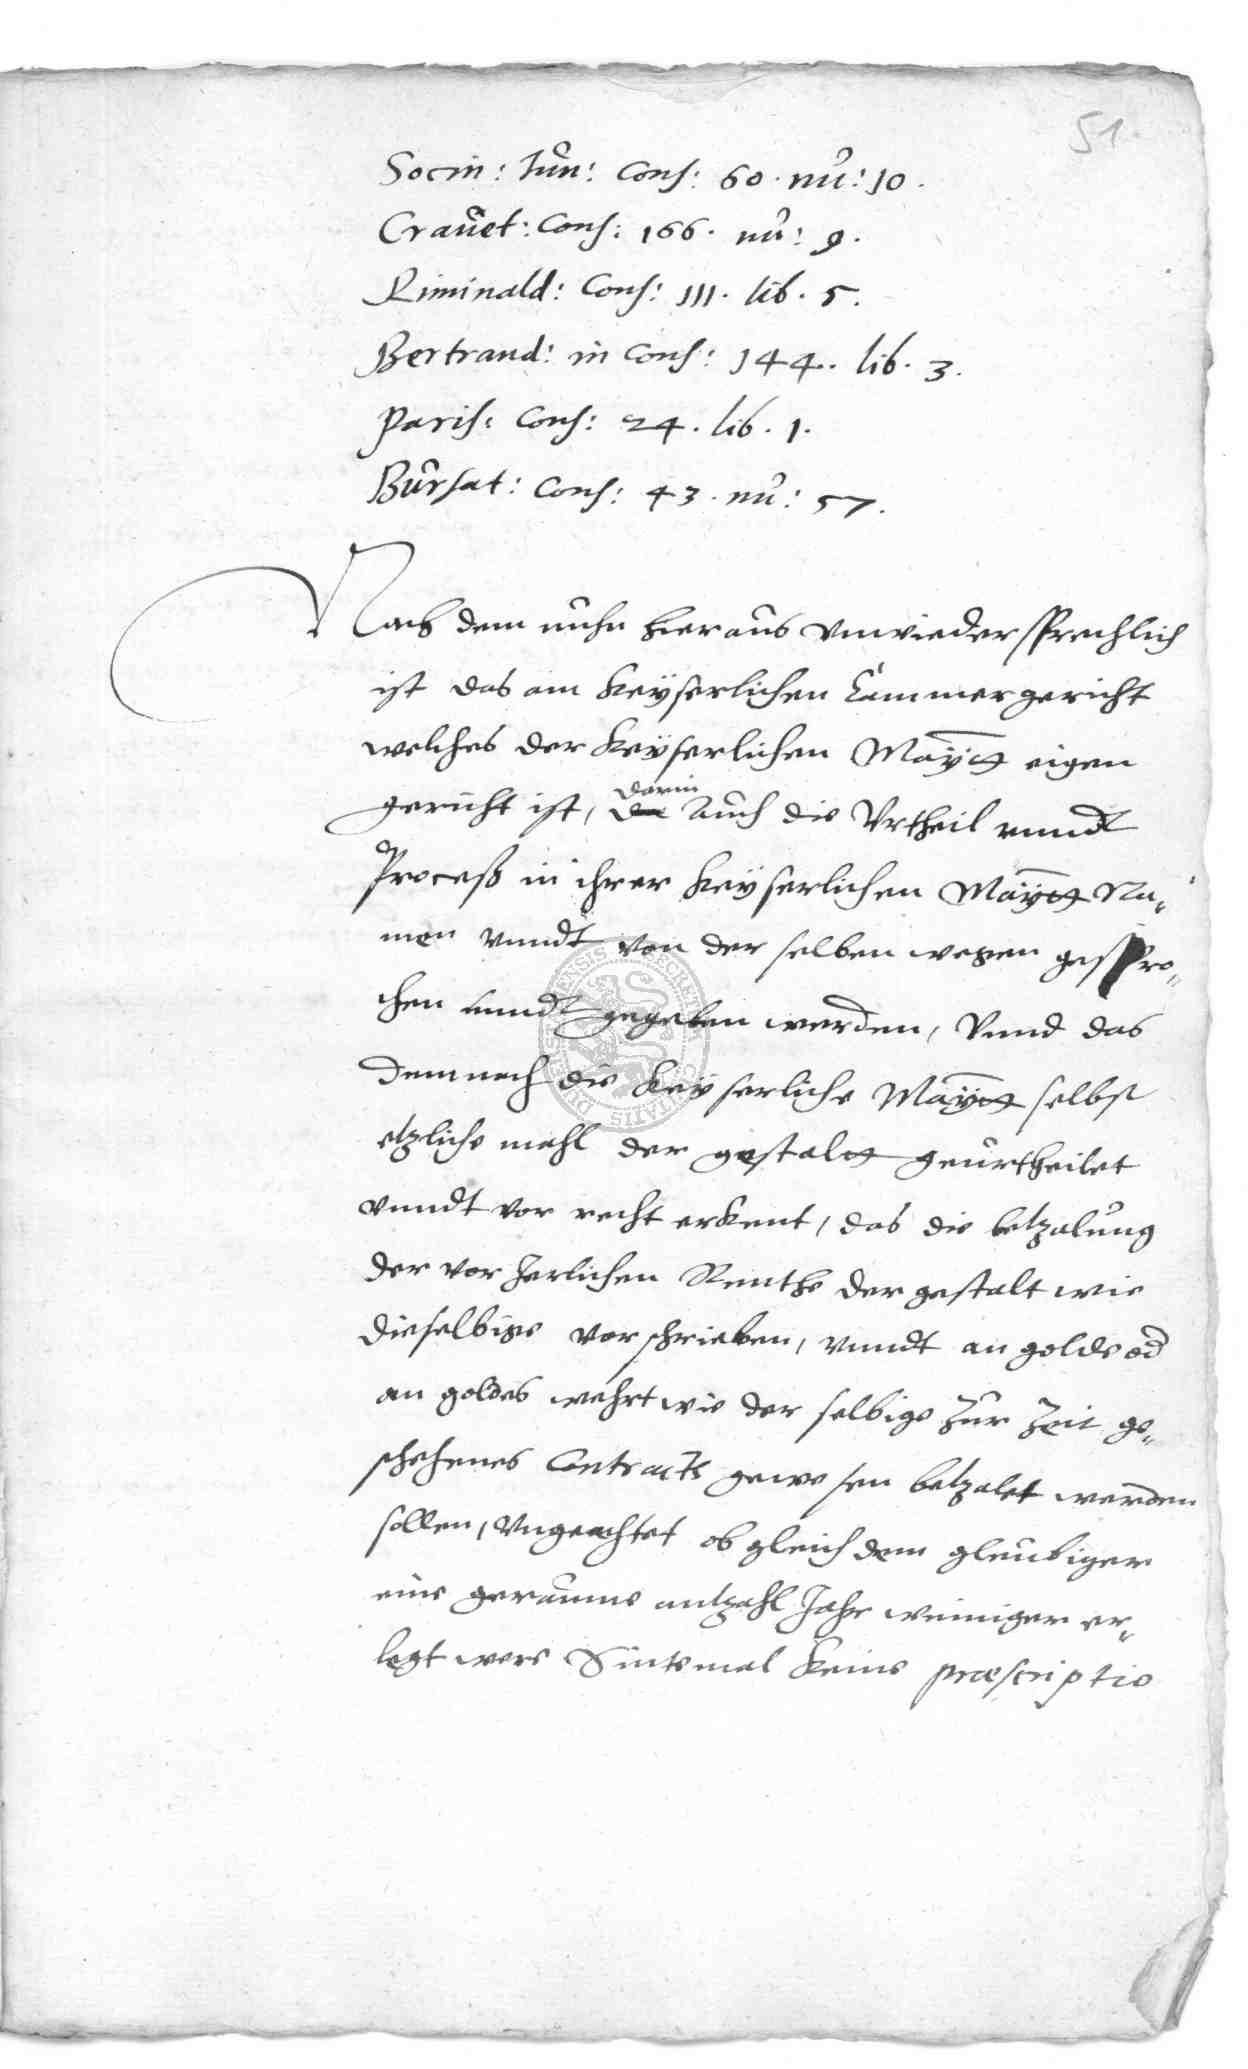 51
Socin: Iun: Cons: 60. nu: 10.
Crauet: Cons: 166. nu: 9.
Riminald: Cons: 111. lib. 5.
Bertrand: in Cons: 144. lib. 3.
Paris: Cons: 24. lib. 1.
Bursat: Cons: 43. nu: 57.
Nach dem nuhn hieraus vnwiedersprechlich
ist das am Keyserlichen Cammergericht
welches der Keyserlichen Maytt eigen
gericht ist, darin auch die Vrtheil vnndt
Proceß in ihrer Keyserlichen Maytt Na-
men vnndt von derselben wegen gespro-
chen vnndt gegeben werden, Vnnd das
demnach die Keyserliche Maytt selbst
etzliche mahl der gestalt geurtheilet
vnndt vor recht erkent, das die betzalung
der vor Jerlichen Renthe der gestalt wie
dieselbige vorschrieben, vnndt an golde od
an goldes wehrt wie der selbige zur Zeit ge-
schehenes Contracts gewesen betzalet werden
sollen, Vngeachtet ob gleich dem gleubiger
eine geraume antzahl Jahr weiniger er-
legt were Sintemal keine præscriptio